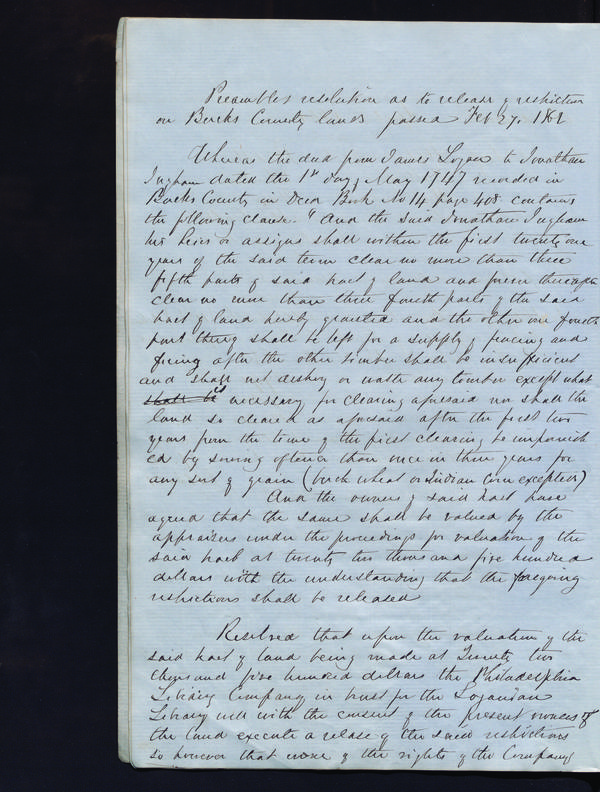 Preamble & resolution as to release of restriction
on Bucks County lands passed Feb 27, 1862
Whereas the deed from James Logan to Jonathan
Ingham dated the 1st day of May 1747 recorded in
Bucks County in Deed Book No 14 page 408 contains
the following clause. "And the said Jonathan Ingham
his heirs or assigns shall within the first twenty one
years of the said term clear no more than three
fifth parts of said tract of land and forever thereafter
clear no more than three fourth parts of the said
tract of land hereby granted and the other one fourth
part thereof shall be left for a supply of fencing and
firing after the other timber shall be insufficient
and shall not destroy or waste any timber except what
shall be is necessary for clearing aforesaid nor shall the
land so cleared as aforesaid after the first two
years from the time of the first clearing be impoverish
ed by sowing oftener than once in three years for
any sort of grain (buck wheat or Indian Corn excepted)
And the owners of said tract have
agreed that the same shall be valued by the
appraisers under the proceedings for valuation of the
said tract at twenty two thousand five hundred
dollars with the understanding that the foregoing
restrictions shall be released
Resolved that upon the valuation of the
said tract of land being made at Twenty two
thousand five hundred dollars the Philadelphia
Library Company in trust for the Loganian
Library will with the consent of the present owners of
the land execute a release of the said restrictions
so however that none of the rights of the Company